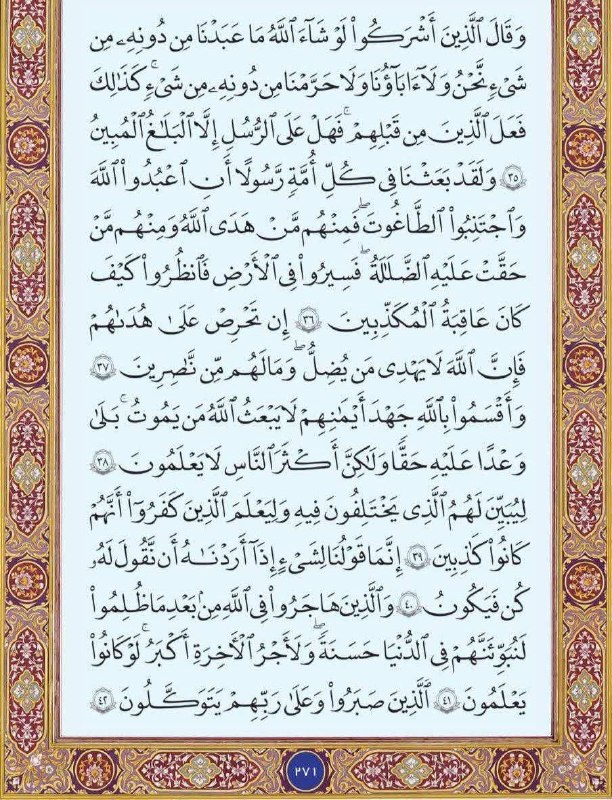 وَقَالَ ٱلَّذِينَ أَشْرَكُوا۟ لَوْ شَآءَ ٱللَّهُ مَا عَبَدْنَا مِن دُونِهِۦ مِن
شَىْءٍ نَّحْنُ وَلَآ ءَابَآؤُنَا وَلَا حَرَّمْنَا مِن دُونِهِۦ مِن شَىْءٍ ۚ كَذَٰلِكَ
فَعَلَ ٱلَّذِينَ مِن قَبْلِهِمْ ۚ فَهَلْ عَلَى ٱلرُّسُلِ إِلَّا ٱلْبَلَٰغُ ٱلْمُبِينُ
٣٥ وَلَقَدْ بَعَثْنَا فِى كُلِّ أُمَّةٍ رَّسُولًا أَنِ ٱعْبُدُوا۟ ٱللَّهَ
وَٱجْتَنِبُوا۟ ٱلطَّٰغُوتَ ۖ فَمِنْهُم مَّنْ هَدَى ٱللَّهُ وَمِنْهُم مَّنْ
حَقَّتْ عَلَيْهِ ٱلضَّلَٰلَةُ ۚ فَسِيرُوا۟ فِى ٱلْأَرْضِ فَٱنظُرُوا۟ كَيْفَ
كَانَ عَٰقِبَةُ ٱلْمُكَذِّبِينَ ٣٦ إِن تَحْرِصْ عَلَىٰ هُدَىٰهُمْ
فَإِنَّ ٱللَّهَ لَا يَهْدِى مَن يُضِلُّ ۖ وَمَا لَهُم مِّن نَّٰصِرِينَ ٣٧
وَأَقْسَمُوا۟ بِٱللَّهِ جَهْدَ أَيْمَٰنِهِمْ ۙ لَا يَبْعَثُ ٱللَّهُ مَن يَمُوتُ ۚ بَلَىٰ
وَعْدًا عَلَيْهِ حَقًّا وَلَٰكِنَّ أَكْثَرَ ٱلنَّاسِ لَا يَعْلَمُونَ ٣٨
لِيُبَيِّنَ لَهُمُ ٱلَّذِى يَخْتَلِفُونَ فِيهِ وَلِيَعْلَمَ ٱلَّذِينَ كَفَرُوٓا۟ أَنَّهُمْ
كَانُوا۟ كَٰذِبِينَ ٣٩ إِنَّمَا قَوْلُنَا لِشَىْءٍ إِذَآ أَرَدْنَٰهُ أَن نَّقُولَ لَهُۥ
كُن فَيَكُونُ ٤٠ وَٱلَّذِينَ هَاجَرُوا۟ فِى ٱللَّهِ مِنۢ بَعْدِ مَا ظُلِمُوا۟
لَنُبَوِّئَنَّهُمْ فِى ٱلدُّنْيَا حَسَنَةً ۖ وَلَأَجْرُ ٱلْءَاخِرَةِ أَكْبَرُ ۚ لَوْ كَانُوا۟
يَعْلَمُونَ ٤١ ٱلَّذِينَ صَبَرُوا۟ وَعَلَىٰ رَبِّهِمْ يَتَوَكَّلُونَ ٤٢
٢٧١